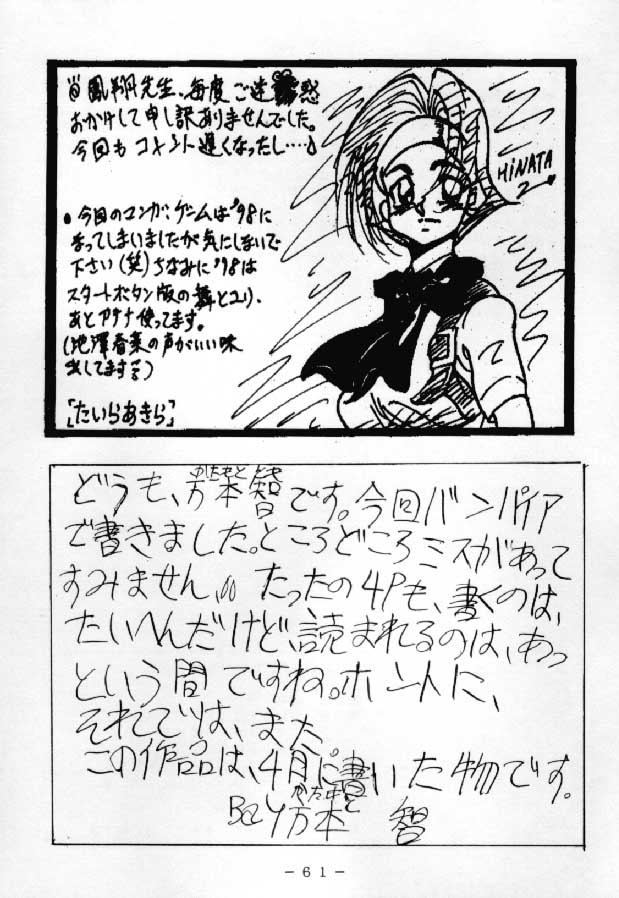 鳳翔先生、毎度ご迷惑
おかけして申し訳ありませんでした。
今回もコメント遅くなったし……
HiNATA
2
●今回のマンガ、ゲームは'98に
なってしまいましたが気にしないで
下さい(笑)ちなみに'98は
スタートボタン版の舞とユリ、
あとアテナ使ってます。
(池澤春菜の声がいい味
出してます)
「たいらあきら」
かたもと とも
どうも、方本智です。今回バンパイア
で書きました。ところどころミスがあって
すみません。たったの4Pも、書くのは、
たいへんだけど、読まれるのは、あっ
という間ですね。ホントに、
それでは、また
この作品は、4月に書いた物です。
かたもと
By 方本 智
－61－